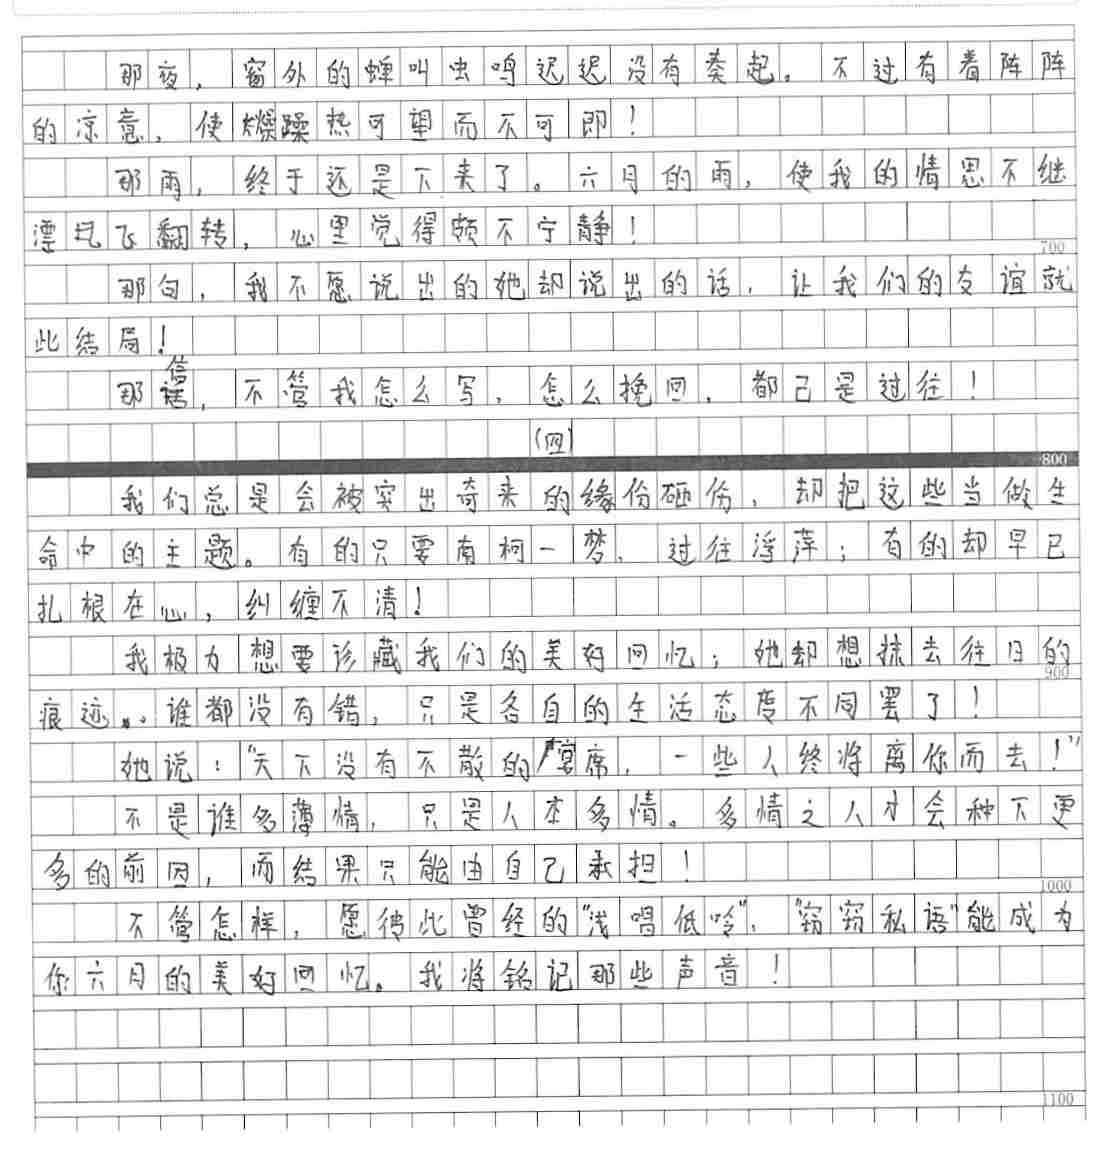 那夜，窗外的蝉叫虫鸣迟迟没有奏起。不过有着阵阵
的凉意，使燥热可望而不可即！
那雨，终于还是下来了。六月的雨，使我的情思不继
漂飞翻转，心里觉得颇不宁静！
700
那句，我不愿说出的她却说出的话，让我们的友谊就
此结局！
那信，不管我怎么写，怎么挽回，都已是过往！
（四）
800
我们总是会被突出奇来的缘份砸伤，却把这些当做生
命中的主题。有的只要南柯一梦，过往浮萍；有的却早已
扎根在心，纠缠不清！
我极力想要诊藏我们的美好回忆；她却想抹去往日的
900
痕迹。谁都没有错，只是各自的生活态度不同罢了！
她说："天下没有不散的宴席，一些人终将离你而去！"
不是谁多薄情，只是人本多情。多情之人才会种下更
多的前因，而结果只能由自己承担！
1000
不管怎样，愿彼此曾经的"浅唱低吟"，"窃窃私语"能成为
你六月的美好回忆。我将铭记那些声音！
1100